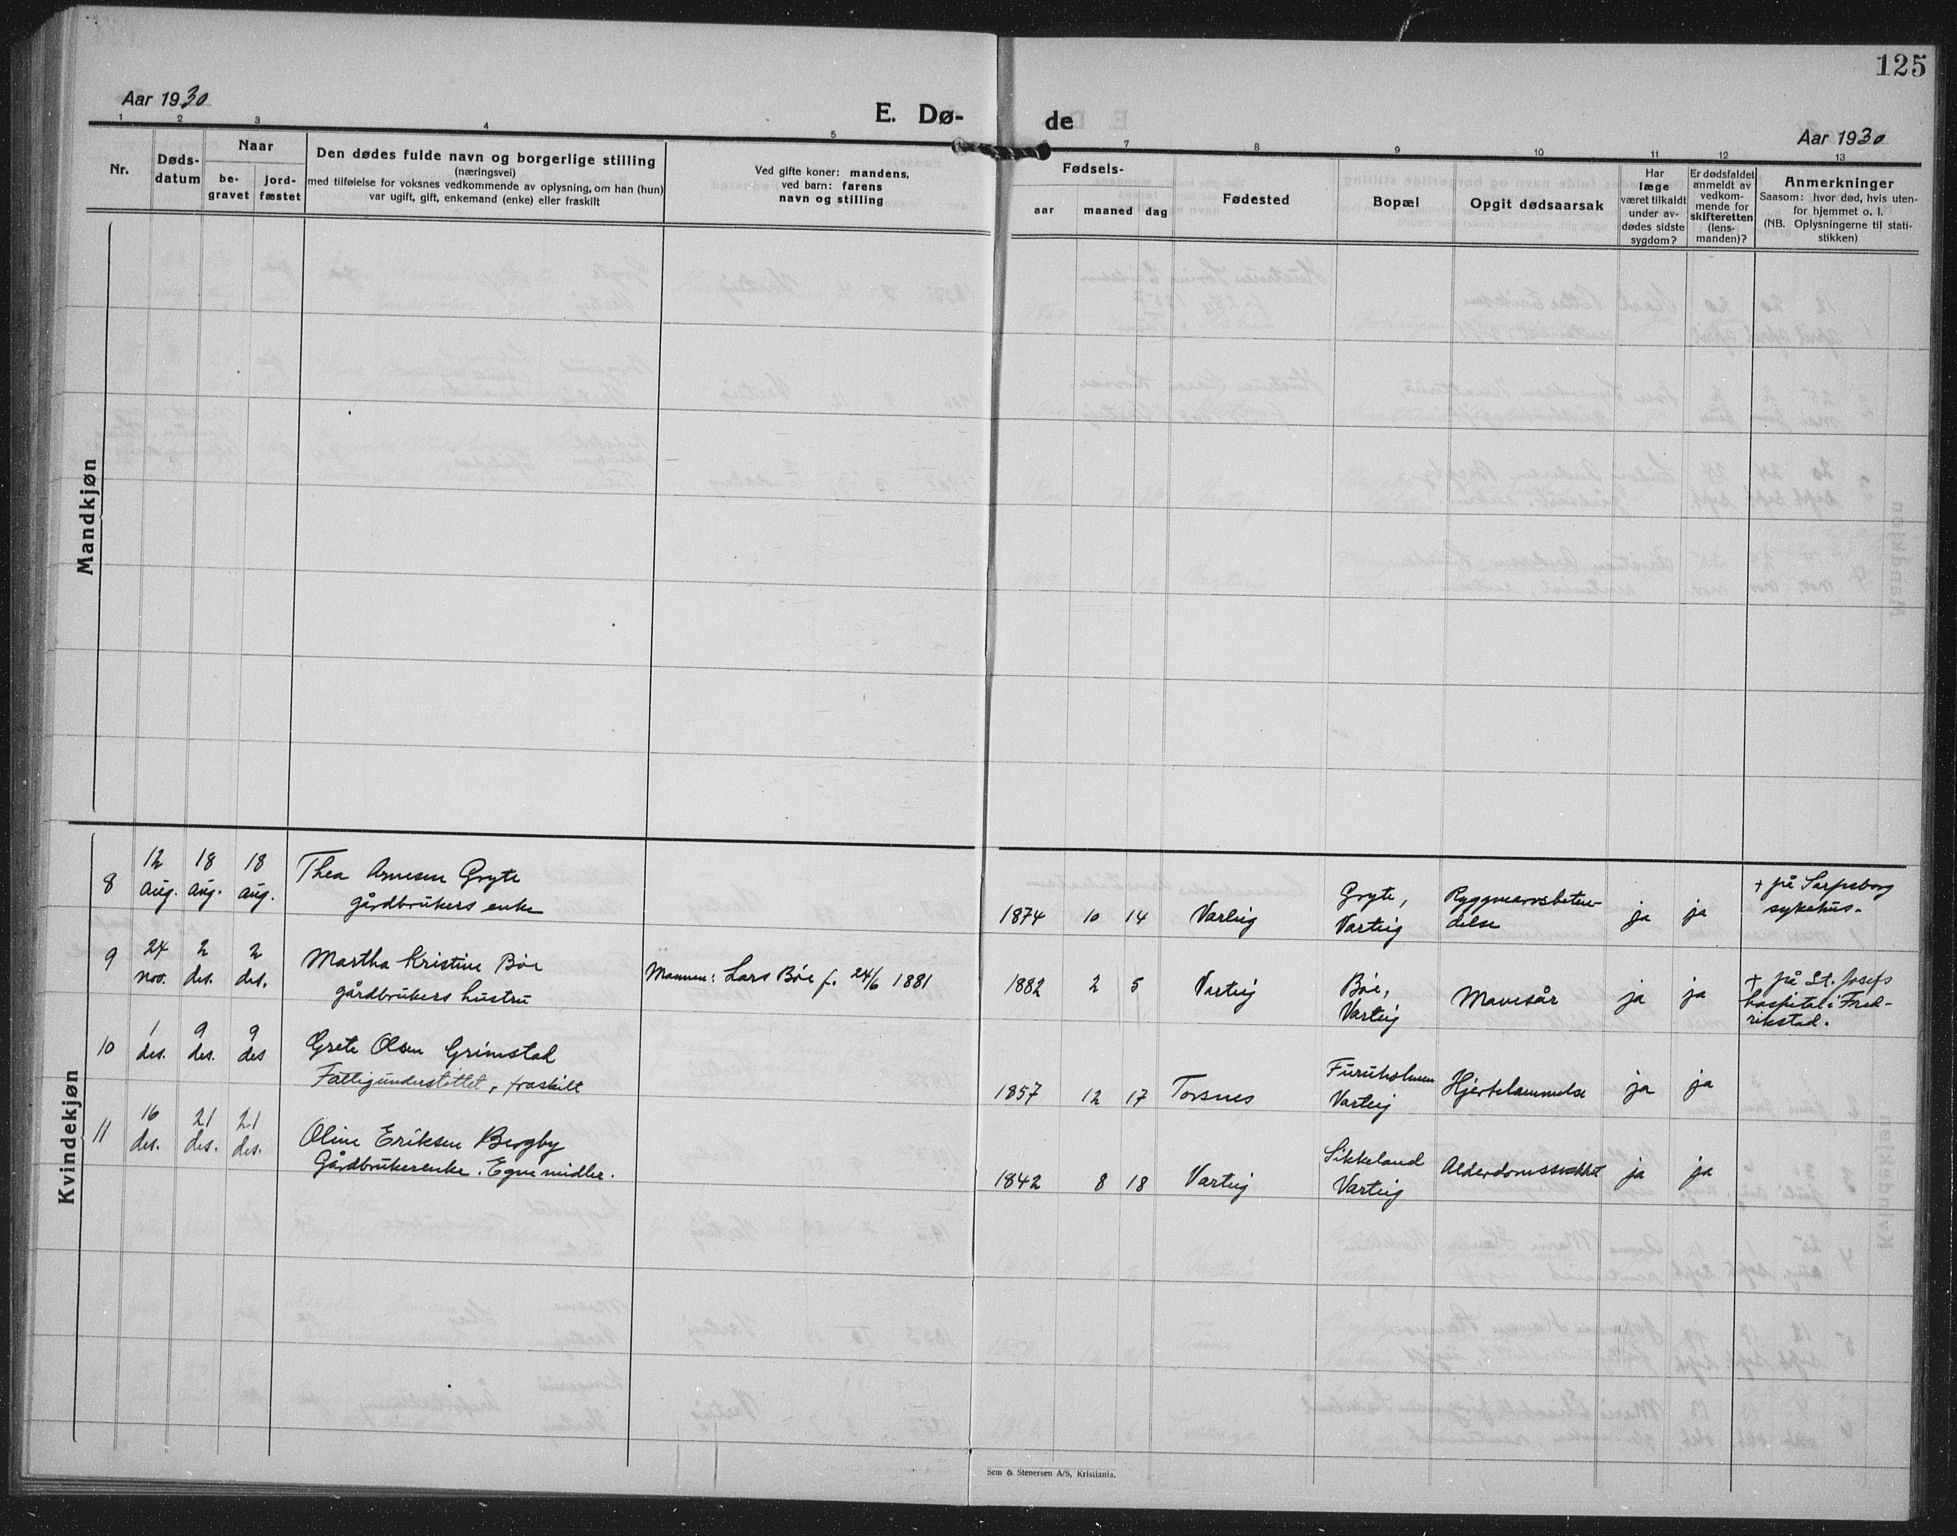 125
Aar 1930
E. Dø-
de
Aar 1930
1 2 3 4 5 7 8 9 10 11 12 13
Nr.
Døds-
datum
Naar
be-
gravet
jord-
fæstet
Den dødes fulde navn og borgerlige stilling
(næringsvei)
med tilføielse for voksnes vedkommende av oplysning, om han (hun)
var ugift, gift, enkemand (enke) eller fraskilt
Ved gifte koner: mandens,
ved barn: farens
navn og stilling
Fødsels-
aar maaned dag
Fødested
Bopæl
Opgit dødsaarsak
Har
læge
været tilkaldt
under av-
dødes sidste
sygdom?
Er dødsfaldet
anmeldt av
vedkom-
mende for
skifteretten
(lens-
manden)?
Anmerkninger
Saasom: hvor død, hvis uten-
for hjemmet o. l.
(NB. Oplysningerne til stati-
stikken)
Mandkjøn
Kvindekjøn
8 12 aug. 18 aug. 18 aug.
Thea Arnesen Gryte
gårdbrukers enke
1874 10 14 Varteig
Gryte,
Varteig
Ryggmarvsbeten-
delse
ja ja
+ på Sarpsborg
sykehus.
9 24 nov. 2 des. 2 des.
Martha Kristine Bøe
gårdbrukers hustru
Mannen: Lars Bøe f. 24/6 1881
1882 2 5 Varteig
Bøe,
Varteig
Mavesår
ja ja
+ på St. Josefs
hospital i Fred-
rikstad.
10 1 des. 9 des. 9 des
Grete Olsen Grimstad
Fattigunderstøttet, fraskilt
1857 12 17 Torsnes
Furuholmen
Varteig
Hjertelammelse
ja ja
11 16 des. 21 des. 21 des.
Oline Eriksen Bergby
Gårdbrukerenke. Egne midler.
1842 8 18 Varteig
Sikkeland
Varteig
Alderdomssvakhet
ja ja
Sem & Stenersen A/S, Kristiania.